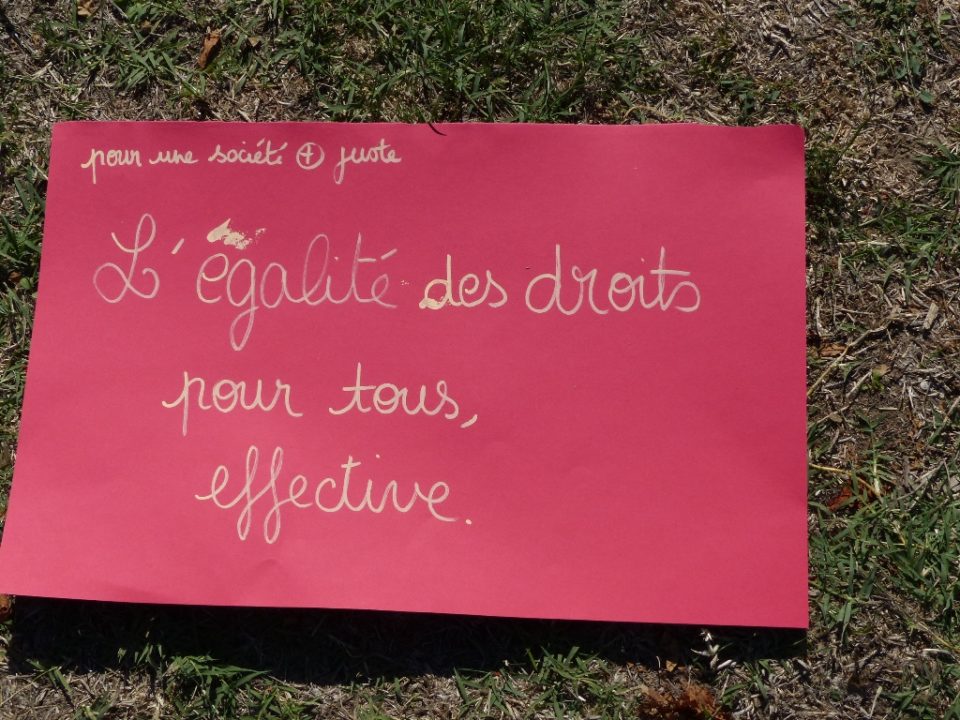 pour une société + juste
L'égalité des droits
pour tous,
effective.